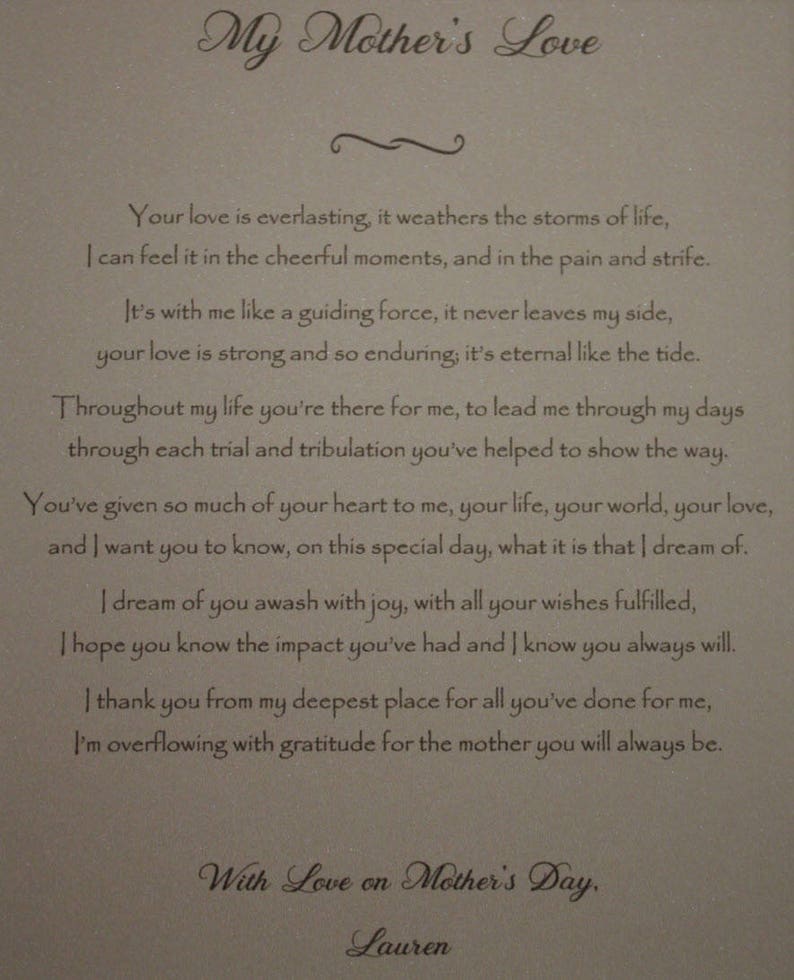 My Mother's Love
Your love is everlasting, it weathers the storms of life,
I can feel it in the cheerful moments, and in the pain and strife.
It's with me like a guiding force, it never leaves my side,
your love is strong and so enduring; it's eternal like the tide.
Throughout my life you're there for me, to lead me through my days
through each trial and tribulation you've helped to show the way.
You've given so much of your heart to me, your life, your world, your love,
and I want you to know, on this special day, what it is that I dream of.
I dream of you awash with joy, with all your wishes fulfilled,
I hope you know the impact you've had and I know you always will.
I thank you from my deepest place for all you've done for me,
I'm overflowing with gratitude for the mother you will always be.
With Love on Mother's Day,
Lauren